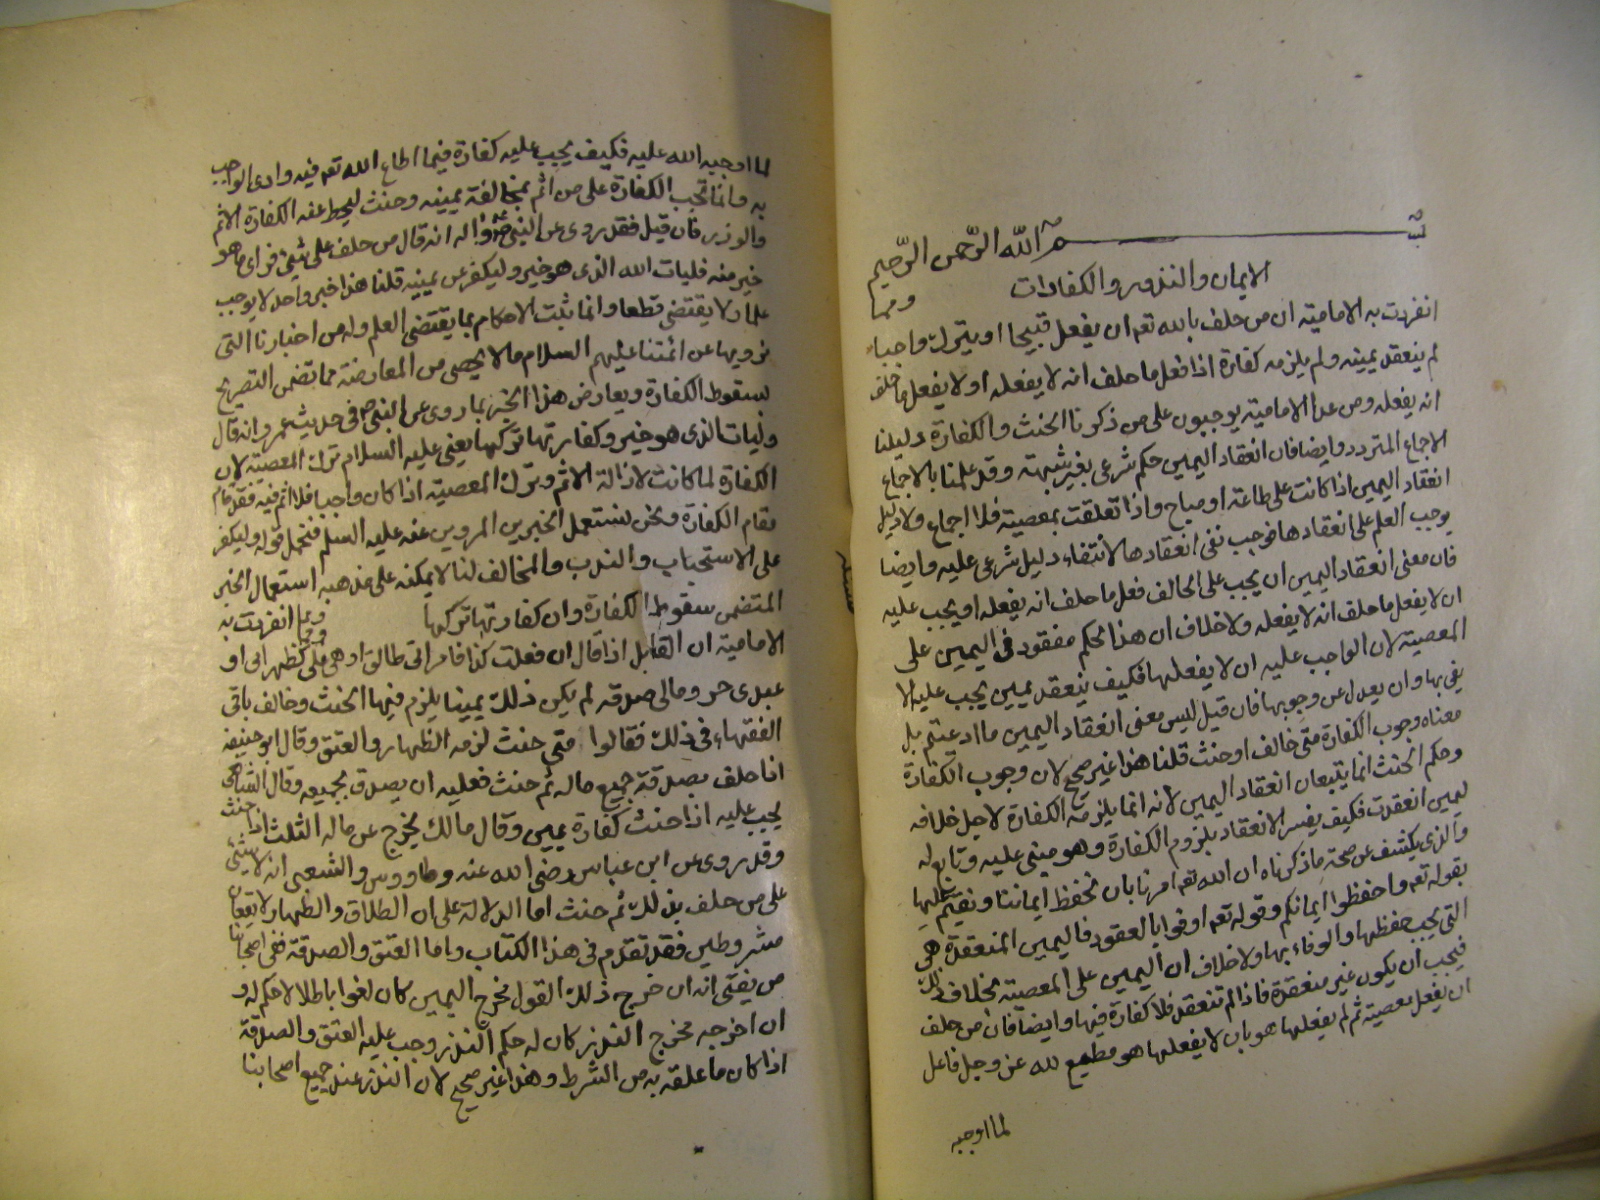 بسم الله الرّحمن الرّحيم
الايمان والنذور والكفارات ومما
انفردت به الامامية ان من حلف بالله تعم ان يفعل قبيحا او يترك واجبا
لم ينعقد يمينه ولم يلزمه كفارة اذا فعل ما حلف انه لا يفعله او لا يفعل ما حلف
انه يفعله ومن عدا الامامية يوجبون على من ذكرنا الحنث والكفارة دليلنا
الاجماع المتردد وايضا فان انعقاد اليمين حكم شرعى بغير شبهة وقد علمنا بالاجماع
انعقاد اليمين اذا كانت على طاعة او مباح واذا تعلقت بمعصية فلا اجماع ولا دليل
يوجب العلم على انعقادها فوجب نفى انعقادها لانتفاء دليل شرعى عليه وايضا
فان معنى انعقاد اليمين ان يجب على الحالف فعل ما حلف انه يفعله او يجب عليه
ان لا يفعل ما حلف انه لا يفعله ولا خلاف ان هذا الحكم مفقود فى اليمين على
المعصية لان الواجب عليه ان لا يفعلها فكيف ينعقد يمين يجب عليه الا
يفى بها وان يعدل عن وجوبها فان قيل ليس معنى انعقاد اليمين ما ادعيتم بل
معناه وجوب الكفارة متى خالف او حنث قلنا هذا غير صحيح لان وجوب الكفارة
وحكم الحنث انما يتبعان انعقاد اليمين لانه انما يلزمه الكفارة لاجل خلافه
ليمين انعقدت فكيف يفسر الانعقاد بلزوم الكفارة وهو مبنى عليه وتابع له
والذى يكشف عن صحة ما ذكرناه ان الله تعم امرنا بان نحفظ ايماننا ونقيم عليها
بقوله تعم واحفظوا ايمانكم وقوله تعم اوفوا بالعقود فاليمين المنعقدة هى
التى يجب حفظها والوفاء بها ولا خلاف ان اليمين على المعصية بخلاف ذلك
فيجب ان يكون غير منعقدة فاذا لم تنعقد فلا كفارة فيها وايضا فان من حلف
ان يفعل معصية ثم لم يفعلها هو بان لا يفعلها هو مطيع لله عز وجل فاعل
لما اوجبه
لما اوجبه الله عليه فكيف يجب عليه كفارة فيما اطاع الله تعم فيه وادى الواجب
به وانما تجب الكفارة على من اثم بمخالفة يمينه وحنث ليحط عنه الكفارة الاثم
والوزر فان قيل فقد روى عن النبى واله انه قال من حلف على شئ فراى ما هو
خير منه فليات الذى هو خير وليكفر عن يمينه قلنا هذا خبر واحد لا يوجب
علما ولا يقتضى قطعا وانما تثبت الاحكام بما يقتضى العلم وله من اخبارنا التى
نرويها عن ائمتنا عليهم السلام ما لا يحصى من المعارضة مما تضمن التصريح
بسقوط الكفارة ويعارض هذا الخبر بما روى عن النبى ص فى حديث عمرو انه قال
وليات الذى هو خير وكفارتها تركها يعنى عليه السلام ترك المعصية لان
الكفارة لما كانت لازالة الاثم وترك المعصية اذا كان واجبا فلا اثم فيه فقد قام
مقام الكفارة ونحن نستعمل الخبرين المروين عنه عليه السلم فنحمل قوله وليكفر
على الاستحباب والندب والمخالف لنا لا يمكنه على مذهبه استعمال الخبر
المتضمن سقوط الكفارة وان كفارتها تركها ومما انفردت به
الامامية ان القايل اذا قال ان فعلت كذا فامراتى طالق او هى على كظهر امى او
عبدى حر ومالى صدقه لم يكن ذلك يمينا يلزم فيها الحنث وخالف باقى
الفقهاء فى ذلك فقالوا متى حنث لزمه الظهار والعتق وقال ابو حنيفه
اذا حلف بصدقة جميع ماله ثم حنث فعليه ان يصدق بجميعه وقال الشافعى
يجب عليه اذا حنث كفارة يمين وقال مالك يخرج عن ماله الثلث اذا حنث
وقد روى عن ابن عباس رضى الله عنه وطاووس والشعبى انه لا شئ
على من حلف بذلك ثم حنث اما الدلالة على ان الطلاق والظهار لا يقعان
مشروطين فقد تقدم فى هذا الكتاب واما العتق والصدقة ففى اصحابنا
من يفتى انه ان خرج ذلك القول مخرج اليمين كان لغوا باطلا لا حكم له و
ان اخرجه مخرج النذر كان له حكم النذر وجب عليه العتق والصدقة
اذا كان ما علقه به من الشرط وهذا غير صحيح لان النذر عند جميع اصحابنا